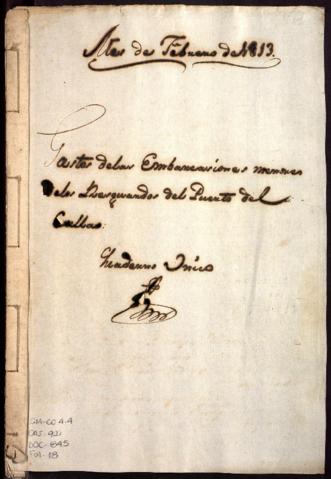 Mes de Febrero de 1813.
Gastos delas Embarcasiones menores
deles Resguardos del Puerto del
Callao.
Quaderno Unico
GM-CO 4.4
CAJ-42
DOC-845
Fol-18